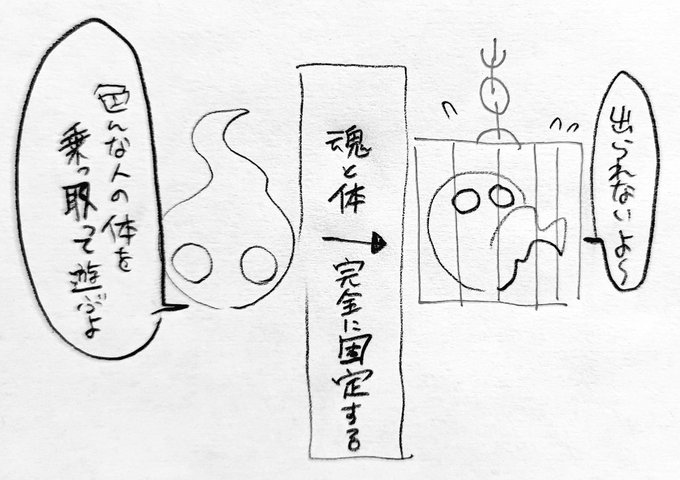 色んな人の体を
乗っ取って遊ぶよ
魂と体
完全に固定する
出られないよ〜